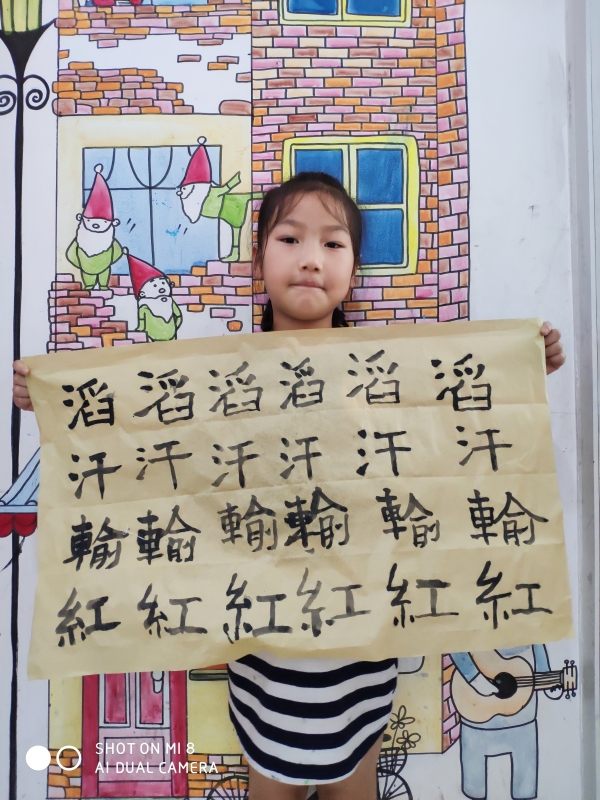 滔滔滔滔滔滔
汗汗汗汗汗汗
輸輸輸輸輸輸
紅紅紅紅紅紅
SHOT ON MI 8
AI DUAL CAMERA